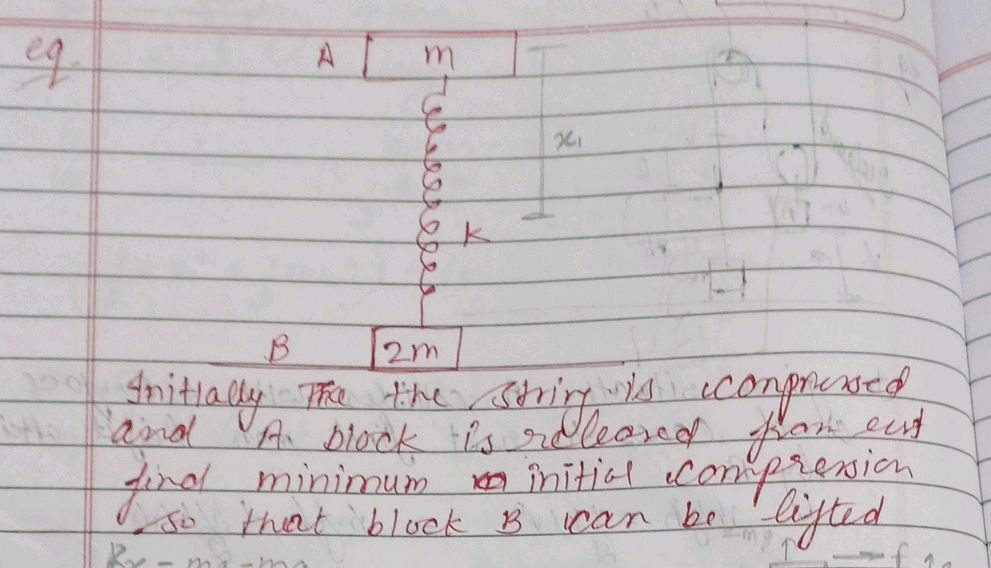 eq.
A m
x₁
K
B 2m
Initially The the string is compressed
and A block is released from rest
find minimum initial compression
so that block B can be lifted
Kx - mg - ma
f